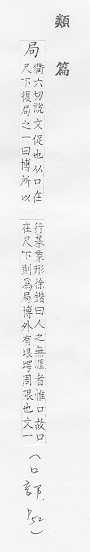 類篇
局
衢六切說文促也从口在
尺下復局之一曰博所以
行棊象形徐鍇曰人之無涯者惟口故口
在尺下則為局博外有垠堮周限也文一
(口部, p52)